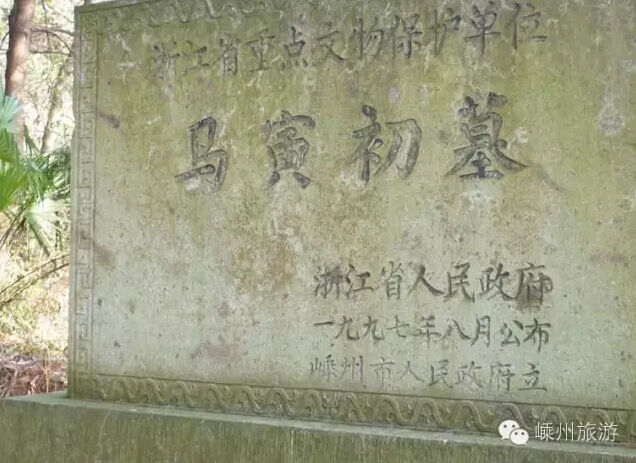 浙江省重点文物保护单位
马寅初墓
浙江省人民政府
一九九七年八月公布
嵊州市人民政府立
嵊州旅游